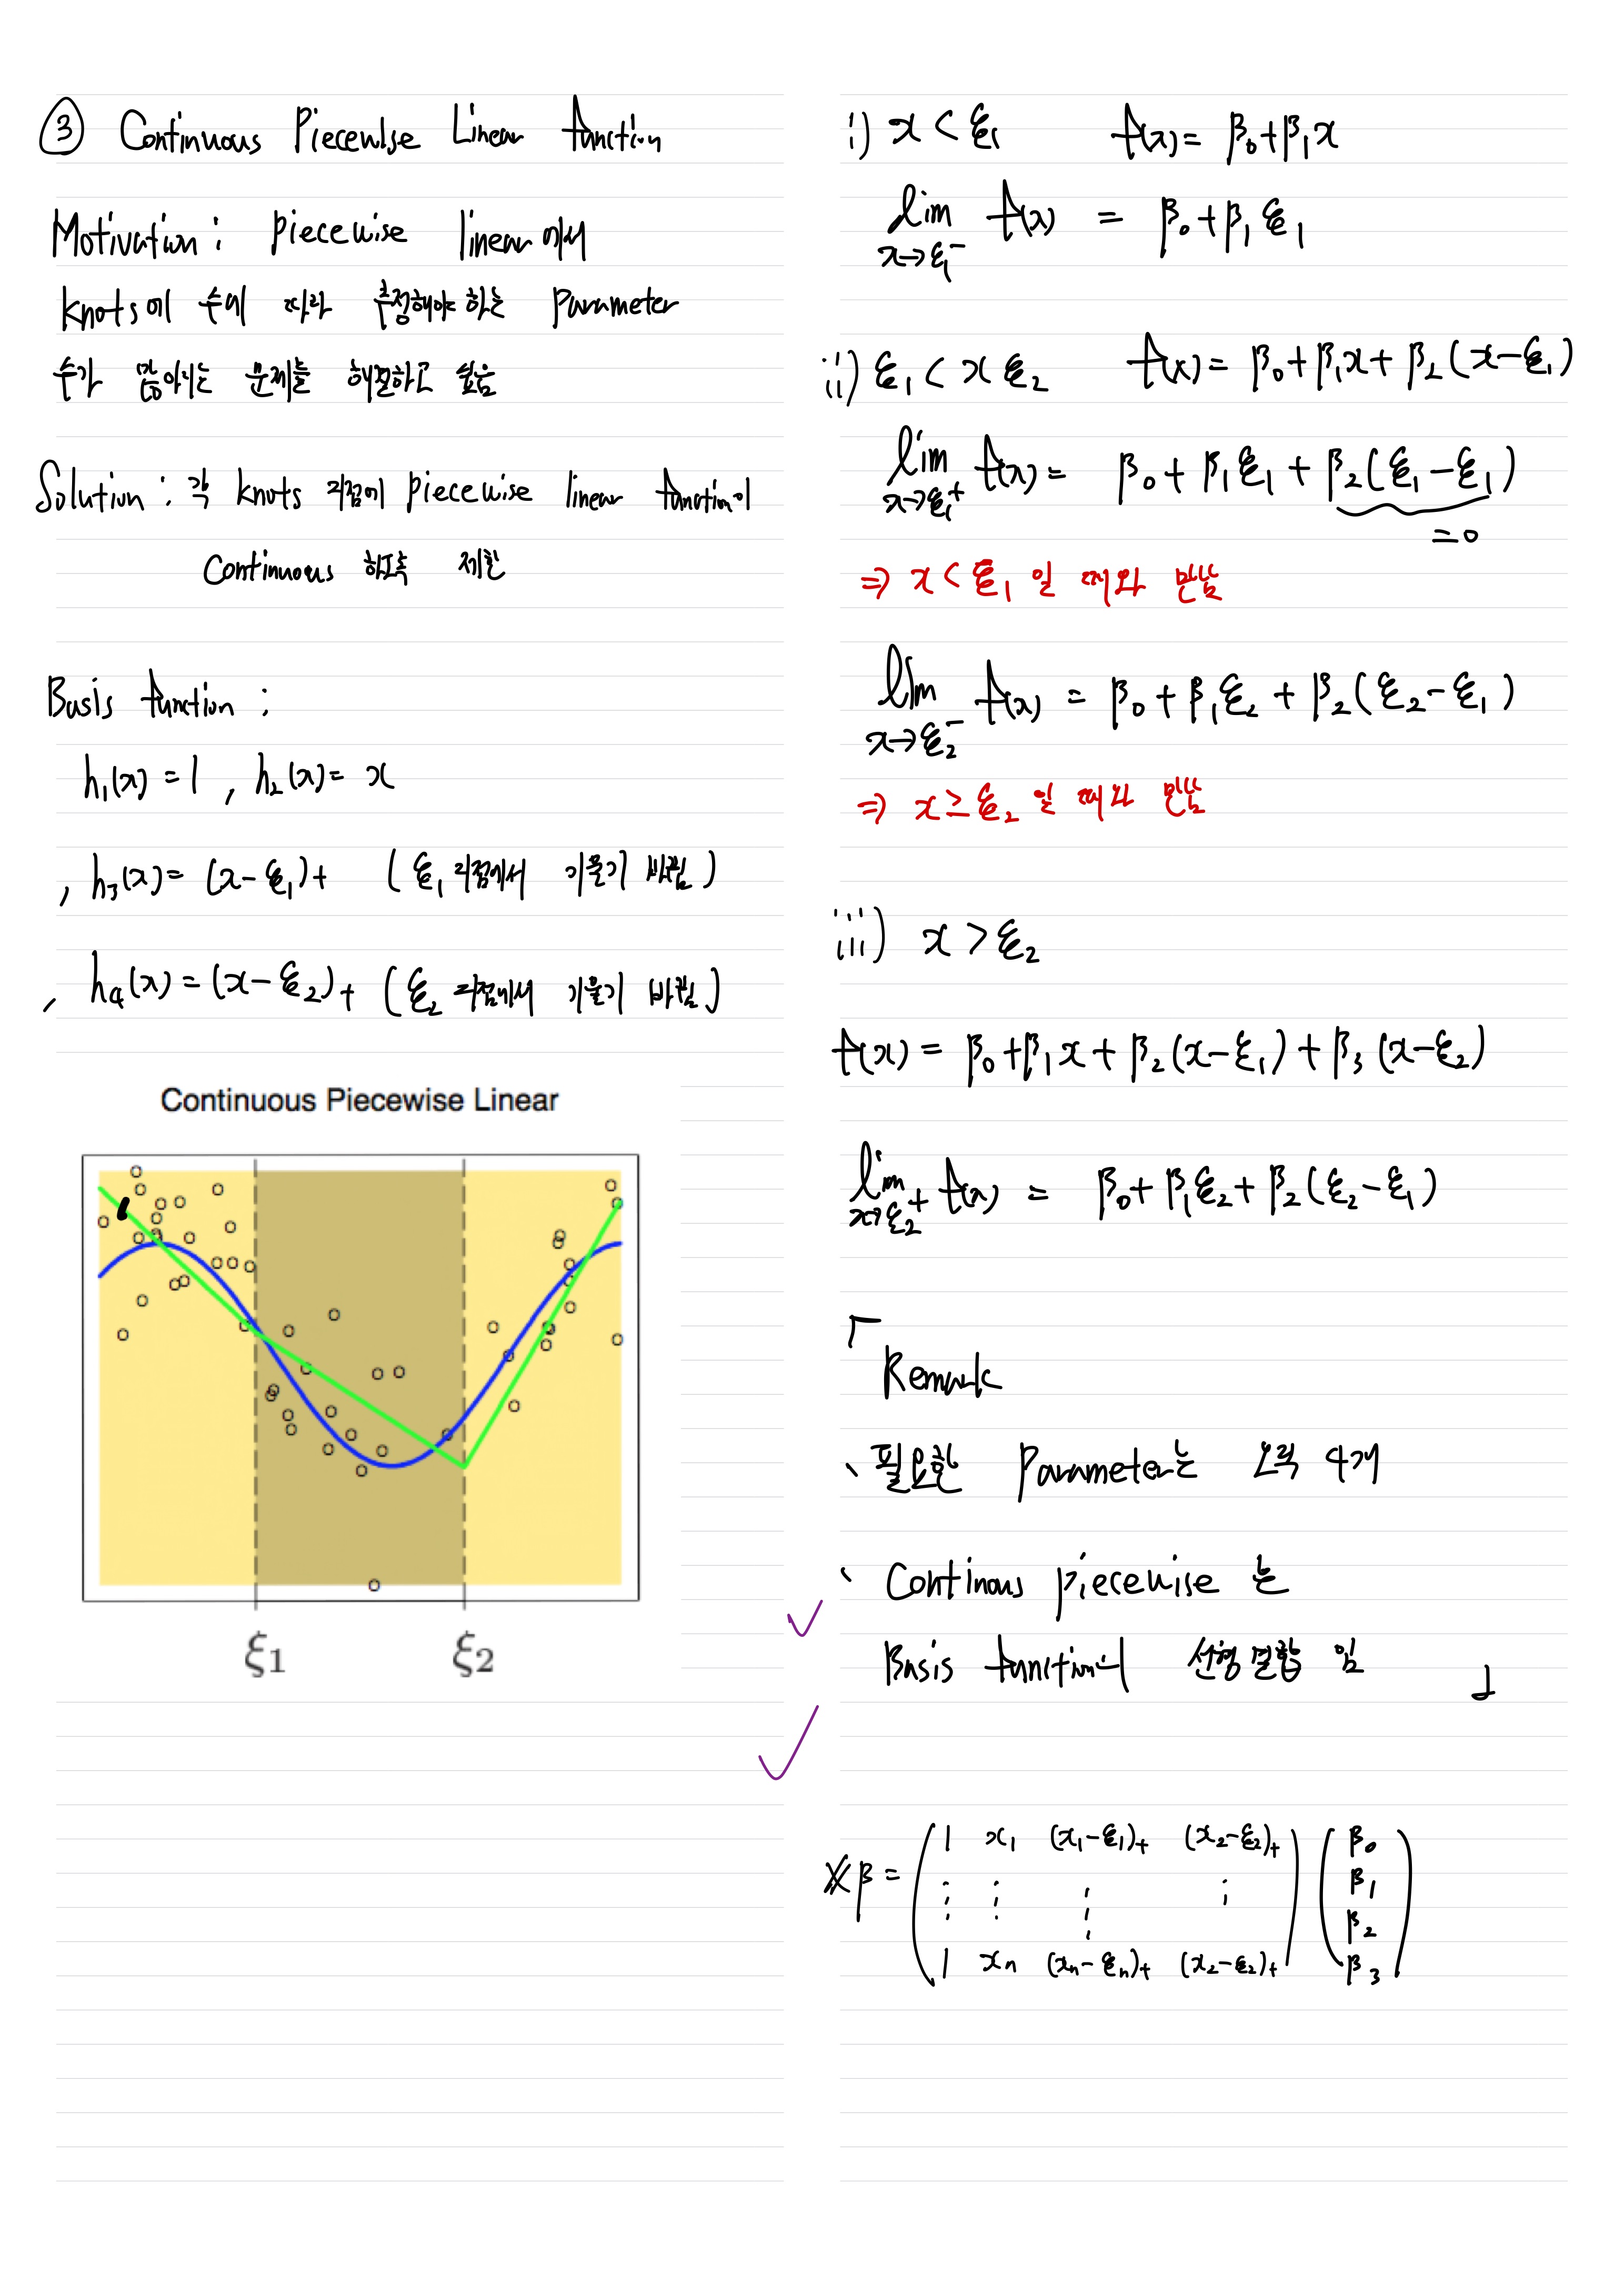 ③ Continuous Piecewise Linear function
Motivation : Piecewise linear에서
knots에 수에 따라 추정해야하는 Parameter
수가 많아지는 문제를 해결하고 싶음
Solution : 각 knots 지점에 piecewise linear function이
Continuous 하도록 제한
Basis function ;
h₁(x) = 1 , h₂(x) = x
, h₃(x) = (x-ξ₁)+ (ξ₁ 지점에서 기울기 바뀜)
, h₄(x) = (x-ξ₂)+ (ξ₂ 지점에서 기울기 바뀜)
Continuous Piecewise Linear
ξ1 ξ2
i) x < ξ₁ f(x) = β₀+β₁x
lim f(x) = β₀+β₁ξ₁
x→ξ₁⁻
ii) ξ₁ < x ξ₂ f(x) = β₀+β₁x+β₂(x-ξ₁)
lim f(x) = β₀+β₁ξ₁+β₂(ξ₁-ξ₁)
x→ξ₁⁺
=0
⇒ x < ξ₁ 일 때와 만남
lim f(x) = β₀+β₁ξ₂+β₂(ξ₂-ξ₁)
x→ξ₂⁻
⇒ x ≥ ξ₂ 일 때와 만남
iii) x > ξ₂
f(x) = β₀+β₁x+β₂(x-ξ₁)+β₃(x-ξ₂)
lim f(x) = β₀+β₁ξ₂+β₂(ξ₂-ξ₁)
x→ξ₂⁺
「Remark
、필요한 Parameter는 오직 4개
、Continous piecewise 는
Basis function의 선형결합 임 」
𝕏β = ( 1 x₁ (x₁-ξ₁)+ (x₂-ξ₂)+ ) ( β₀
⋮ ⋮ ⋮ ⋮ β₁
β₂
1 xₙ (xₙ-ξₙ)+ (x₂-ξ₂)+ β₃ )